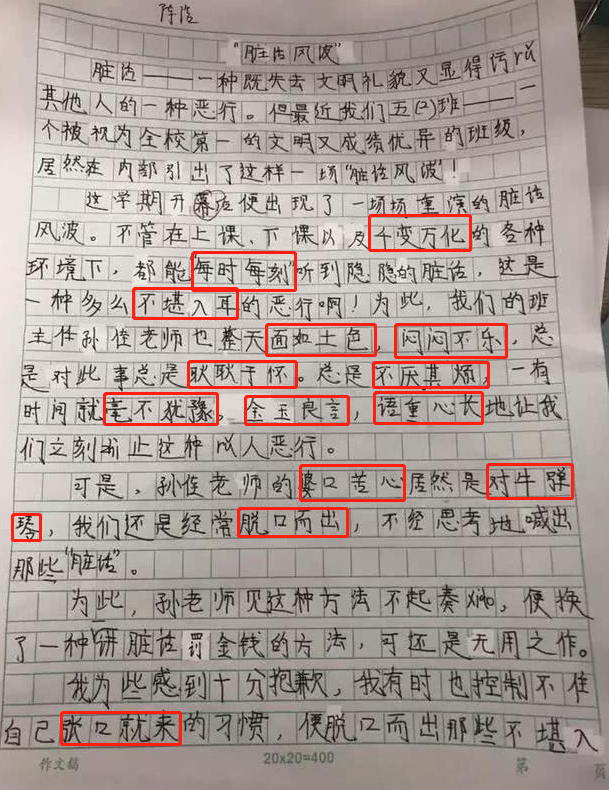 陈浩
“脏话风波”
脏话———一种既失去文明礼貌又显得污rǔ
其他人的一种恶行。但最近我们五(2)班———一
个被视为全校第一的文明又成绩优异的班级，
居然在内部引出了这样一场“脏话风波”！
这学期开幕后便出现了一场场重演的脏话
风波。不管在上课、下课以及千变万化的各种
环境下，都能“每时每刻”听到隐隐的脏话，这是
一种多么不堪入耳的恶行啊！为此，我们的班
主任孙佳老师也整天面如土色，闷闷不乐，总
是对此事总是耿耿于怀。总是不厌其烦，一有
时间就毫不犹豫，金玉良言，语重心长地让我
们立刻停止这种以人恶行。
可是，孙佳老师的婆口苦心居然是对牛弹
琴，我们还是经常脱口而出，不经思考地喊出
那些“脏话”。
为此，孙老师见这种方法不起奏xiào，便换
了一种“讲脏话罚金钱的方法，可还是无用之作。
我为些感到十分抱歉，我有时也控制不住
自己张口就来的习惯，便脱口而出那些不堪入
作文稿 20x20=400 第 页